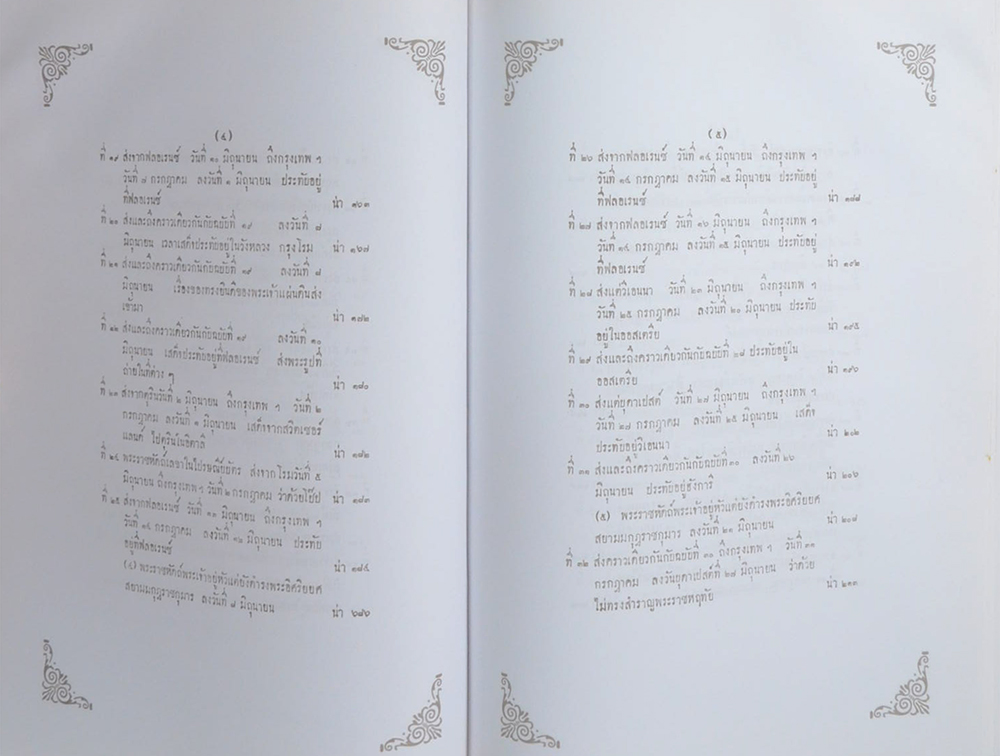 (๔)
ที่ ๑๙ ส่งจากฟลอเรนซ์ วันที่ ๑๐ มิถุนายน ถึงกรุงเทพ ฯ
วันที่ ๗ กรกฎาคม ลงวันที่ ๑ มิถุนายน ประทับอยู่
ที่ฟลอเรนซ์ น่า ๑๖๓
ที่ ๒๐ ส่งและถึงคราวเดียวกันกับฉบับที่ ๑๙ ลงวันที่ ๗
มิถุนายน เวลาเสด็จประทับอยู่ในวังหลวง กรุงโรม น่า ๑๖๗
ที่ ๒๑ ส่งและถึงคราวเดียวกันกับฉบับที่ ๑๙ ลงวันที่ ๗
มิถุนายน เรื่องของทรงยินดีของพระเจ้าแผ่นดินส่ง
เข้ามา น่า ๑๗๒
ที่ ๒๒ ส่งและถึงคราวเดียวกันกับฉบับที่ ๑๙ ลงวันที่ ๑๐
มิถุนายน เสด็จประทับอยู่ที่ฟลอเรนซ์ ส่งพระรูปที่
ถ่ายในที่ต่าง ๆ น่า ๑๘๐
ที่ ๒๓ ส่งจากตุรินวันที่ ๒ มิถุนายน ถึงกรุงเทพ ฯ วันที่ ๒
กรกฎาคม ลงวันที่ ๑ มิถุนายน เสด็จจากสวิตเซอร์
แลนด์ ไปตุรินในอิตาลี น่า ๑๘๒
ที่ ๒๔ พระราชหัตถ์เลขาในไปรษณีย์บัตร ส่งจากโรมวันที่ ๕
มิถุนายน ถึงกรุงเทพ ฯ วันที่ ๒ กรกฎาคม ว่าด้วยโป๊ป น่า ๑๘๓
ที่ ๒๕ ส่งจากฟลอเรนซ์ วันที่ ๑๓ มิถุนายน ถึงกรุงเทพ ฯ
วันที่ ๑๔ กรกฎาคม ลงวันที่ ๑๒ มิถุนายน ประทับ
อยู่ที่ฟลอเรนซ์ น่า ๑๘๔
(๔) พระราชหัตถ์พระเจ้าอยู่หัวแต่ยังดำรงพระอิศริยยศ
สยามมกุฎราชกุมาร ลงวันที่ ๗ มิถุนายน น่า ๖๘๖
(๕)
ที่ ๒๖ ส่งจากฟลอเรนซ์ วันที่ ๑๔ มิถุนายน ถึงกรุงเทพ ฯ
วันที่ ๑๔ กรกฎาคม ลงวันที่ ๑๕ มิถุนายน ประทับอยู่
ที่ฟลอเรนซ์ น่า ๑๘๘
ที่ ๒๗ ส่งจากฟลอเรนซ์ วันที่ ๑๖ มิถุนายน ถึงกรุงเทพ ฯ
วันที่ ๑๔ กรกฎาคม ลงวันที่ ๑๕ มิถุนายน ประทับอยู่
ที่ฟลอเรนซ์ น่า ๑๙๒
ที่ ๒๘ ส่งแต่วิเอนนา วันที่ ๒๓ มิถุนายน ถึงกรุงเทพ ฯ
วันที่ ๒๕ กรกฎาคม ลงวันที่ ๒๐ มิถุนายน ประทับ
อยู่ในออสเตรีย น่า ๑๙๕
ที่ ๒๙ ส่งและถึงคราวเดียวกันกับฉบับที่ ๒๘ ประทับอยู่ใน
ออสเตรีย น่า ๑๙๖
ที่ ๓๐ ส่งแต่บุดาเปสต์ วันที่ ๒๗ มิถุนายน ถึงกรุงเทพ ฯ
วันที่ ๒๗ กรกฎาคม ลงวันที่ ๒๕ มิถุนายน เสด็จ
ประทับอยู่วิเอนนา น่า ๒๐๒
ที่ ๓๑ ส่งและถึงคราวเดียวกันกับฉบับที่ ๓๐ ลงวันที่ ๒๖
มิถุนายน ประทับอยู่ฮังการี น่า ๒๐๖
(๕) พระราชหัตถ์พระเจ้าอยู่หัวแต่ยังดำรงพระอิศริยยศ
สยามมกุฎราชกุมาร ลงวันที่ ๒๑ มิถุนายน น่า ๒๐๗
ที่ ๓๒ ส่งคราวเดียวกันกับฉบับที่ ๓๐ ถึงกรุงเทพ ฯ วันที่ ๓๑
กรกฎาคม ลงวันบุดาเปสต์ที่ ๒๗ มิถุนายน ว่าด้วย
ไม่ทรงสำราญพระราชหฤทัย น่า ๒๑๓